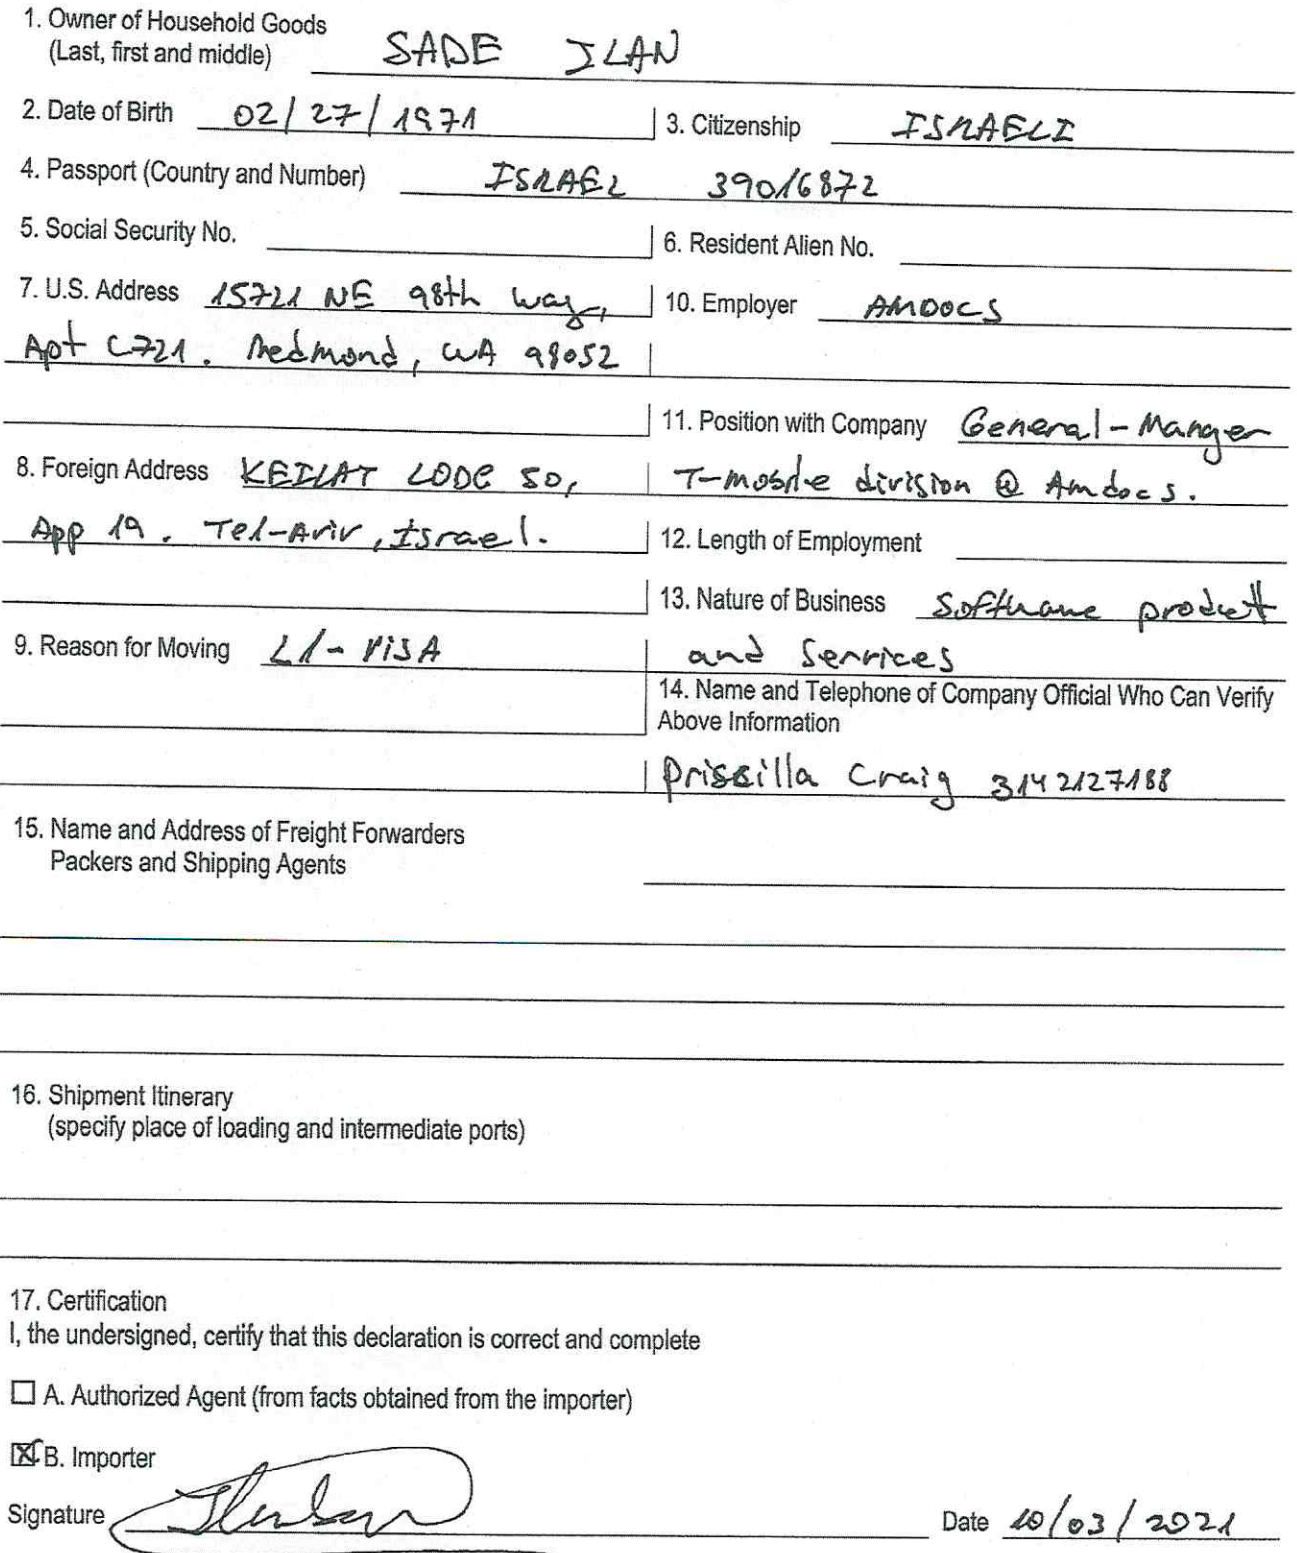 1. Owner of Household Goods
(Last, first and middle) SADE ILAN
2. Date of Birth 02/27/1971 3. Citizenship ISRAELI
4. Passport (Country and Number) ISRAEL 39016872
5. Social Security No. 6. Resident Alien No.
7. U.S. Address 15721 NE 98th Way, 10. Employer AMDOCS
Apt C721. Redmond, WA 98052
11. Position with Company General-Manger
8. Foreign Address KEILAT LODG 50, T-mobile division @ Amdocs.
App 19. Tel-Aviv, Israel. 12. Length of Employment
13. Nature of Business Software product
9. Reason for Moving L1-VISA and Services
14. Name and Telephone of Company Official Who Can Verify
Above Information
Priscilla Craig 3142127188
15. Name and Address of Freight Forwarders
Packers and Shipping Agents
16. Shipment Itinerary
(specify place of loading and intermediate ports)
17. Certification
I, the undersigned, certify that this declaration is correct and complete
☐ A. Authorized Agent (from facts obtained from the importer)
☒ B. Importer
Signature Date 10/03/2021